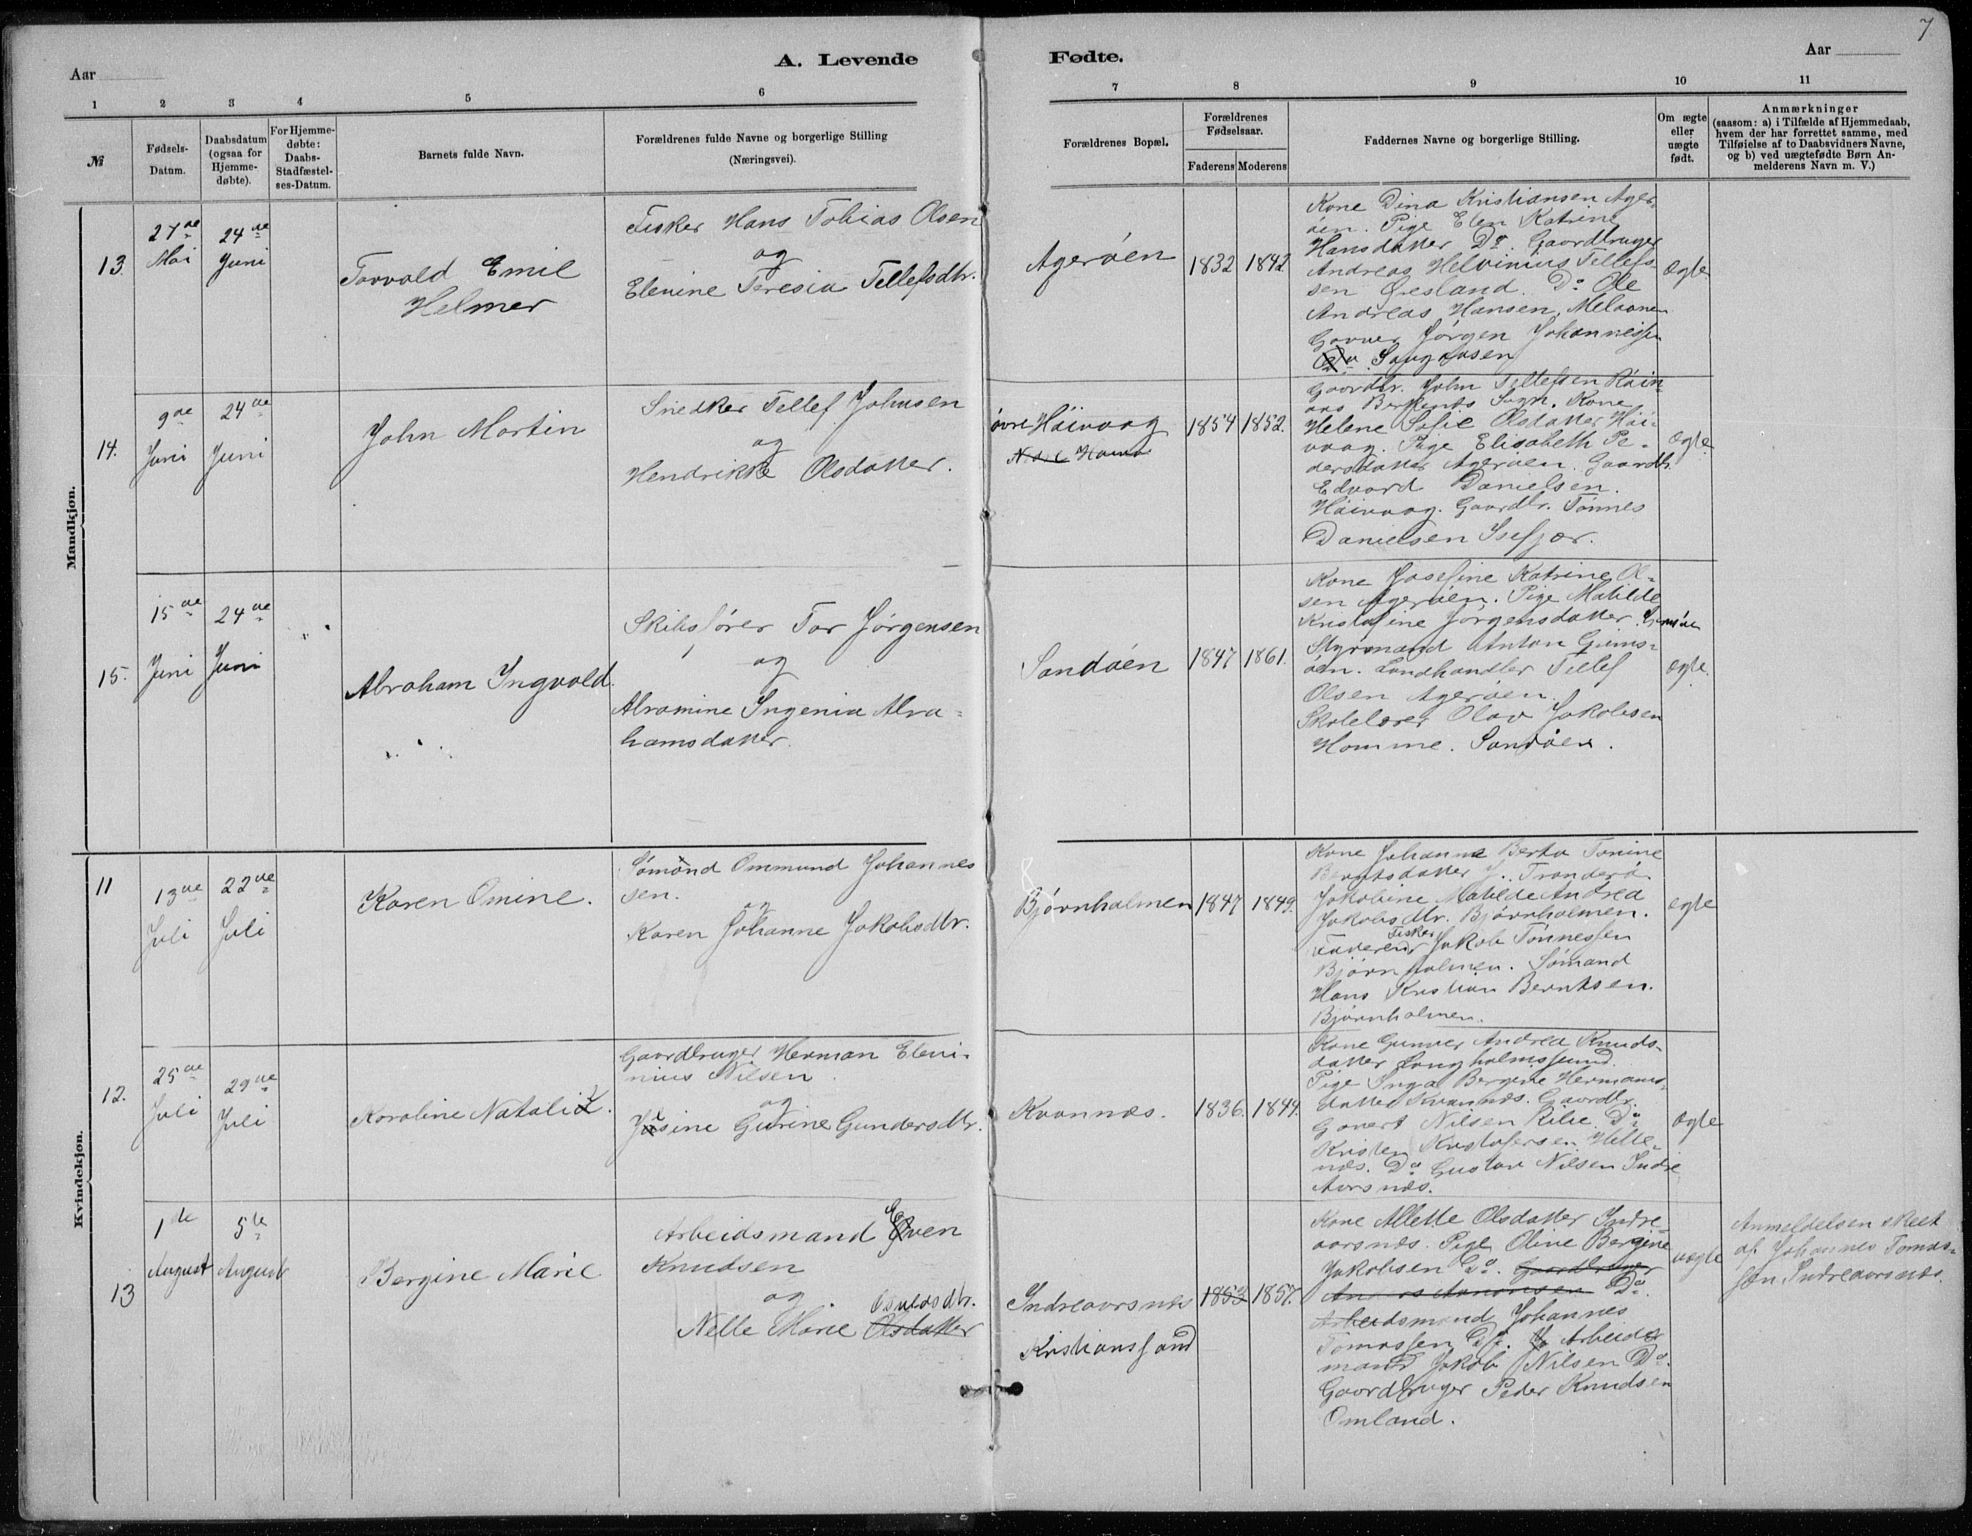 7
A. Levende
Fødte.
Aar
Aar
1 2 3 4 5 6 7 8 9 10 11
№
Fødsels-
Datum.
Daabsdatum
(ogsaa for
Hjemme-
døbte).
For Hjemme-
døbte:
Daabs-
Stadfæstel-
ses-Datum.
Barnets fulde Navn.
Forældrenes fulde Navne og borgerlige Stilling
(Næringsvei).
Forældrenes Bopæl.
Forældrenes
Fødselsaar.
Faderens Moderens
Faddernes Navne og borgerlige Stilling.
Om ægte
eller
uægte
født.
Anmærkninger
(saasom: a) i Tilfælde af Hjemmedaab,
hvem der har forrettet samme, med
Tilføielse af to Daabsvidners Navne,
og b) ved uægtefødte Børn An-
melderens Navn m. V.)
Mandkjøn.
13.
27de
Mai
24de
Juni
Torvald Emil
Helmer
Fisker Hans Tobias Olsen
og
Elenine Teresia Tellefsdtr.
Agerøen
1832 1842
Kone Dina Kristiansen Ager
øen. Pige Elen Katrine
Hansdatter Do. Gaardbruger
Andreas Helvinius Tellefs-
sen Øresland. Do Ole
Andreas Hansen,
Jørgen Johannessen
ægte
14.
9de
Juni
24de
Juni
John Martin
Snedker Tellef Johnsen
og
Hendrikke Olsdatter.
øvre Høivaag
1854 1852.
Gaardbr. John Tellefsen
Sogn. Kone
Helene Sofie Olsdatter Høi-
vaag. Pige Elisabeth Pe-
dersdatter Agerøen. Gaardb.
Edvard Danielsen.
Høivaag. Gaardbr. Tønnes
Danielsen Isefjær.
ægte
15.
15de
Juni
24de
Juni
Abraham Ingvald.
Skibsfører Tor Jørgensen
og
Abramine Ingenia Abra-
hamsdatter.
Sandøen
1847 1861.
Kone Josefine Katrine Ol-
sen Agerøen. Pige Matilde
Kristofine Jørgensdatter.
Styrmand Anton Gjems-
øen. Landhandler Tellef
Olsen Agerøen.
Skolelærer Olav Jakobsen
Homme. Sandøen.
ægte.
Kvindekjøn.
11
13de
Juli
22de
Juli
Karen Omine.
Sømand Ommund Johannes
sen.
og
Karen Johanne Jakobsdtr.
Bjørnholmen
1847 1849.
Kone Johanne Berta Tonine
Berntsdatter
Jakobine Matilde Andrea
Jakobsdtr. Bjørnholmen.
Faderen
Fisker Jakob Tønnessen
Bjørnholmen. Sømand
Hans Kristian Berntsen.
Bjørnholmen.
ægte
12.
25de
Juli
29de
Juli
Karoline Natali
Gaardbruger Herman Eleni-
nius Nilsen.
og
Gurine Gundersdtr.
Kvannæs.
1836. 1844.
Kone Gunver Andrea Knuds-
datter Langholmssund.
Pige Inga Bergine Hermans-
datter Kvannæs. Gaardbr.
Govert Nilsen Kilie. Do
Kristen Kristofersen Helle-
næs. Do Gustav Nilsen Indre
Aarsnæs.
ægte
13
1de
August
5te
August
Bergine Marie
Arbeidsmand Even
Knudsen
og
Nelle Marie Olsdatter
Osuldsdtr.
Indreaarsnæs
Kristianssand
1853 1857.
Kone Allette Olsdatter Indre-
aarsnæs. Pige Oline Bergine
Jakobsen Do. Gaardbruger
Do.
Arbeidsmand Johannes
Tomassen Do. Arbeids
mand Jakob Nilsen Do.
Gaardbruger Peder Knudsen
Omland.
uægte
Anmeldelsen skeet
af Johannes Tomas-
sen Indreaarsnæs.